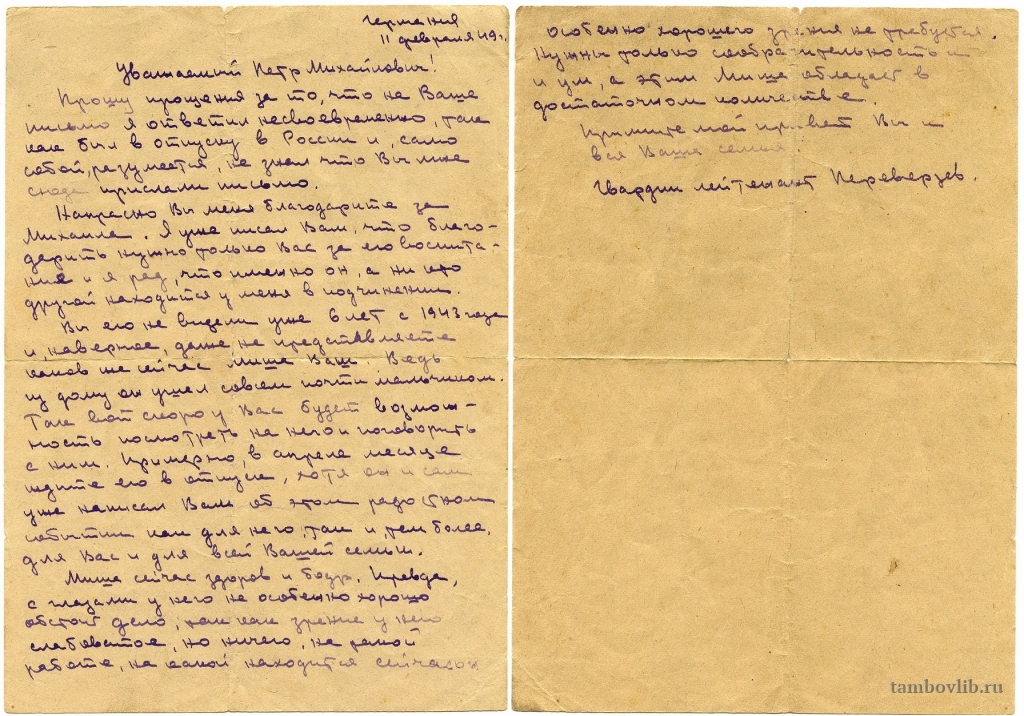 Германия
11 февраля 49 г.
Уважаемый Петр Михайлович!
Прошу прощения за то, что на Ваше
письмо я ответил несвоевременно, так
как был в отпуску в России и, само
собой, разумеется, не знал что Вы мне
сюда прислали письмо.
Напрасно Вы меня благодарите за
Михаила. Я уже писал Вам, что благо-
дарить нужно только Вас за его воспита-
ние и я рад, что именно он, а ни кто
другой находится у меня в подчинении.
Вы его не видели уже 6 лет с 1943 года
и, наверное, даже, не представляете
каков же сейчас Миша Ваш. Ведь
из дому он ушел совсем почти мальчиком.
Так вот скоро у Вас будет возмож-
ность посмотреть на него и поговорить
с ним. Примерно, в апреле месяце
ждите его в отпуск, хотя он и сам
уже написал Вам об этом радостном
событии как для него, так и, тем более,
для Вас и для всей Вашей семьи.
Миша сейчас здоров и бодр. Правда,
с глазами у него не особенно хорошо
обстоит дело, так как зрение у него
слабоватое, но ничего, на такой
работе, на какой находится сейчас он
особенно хорошего зрения не требуется.
Нужны только сообразительность
и ум, а этим Миша обладает в
достаточном количестве.
Примите мой привет Вы и
вся Ваша семья.
Гвардии лейтенант Переверзев.
tambovlib.ru